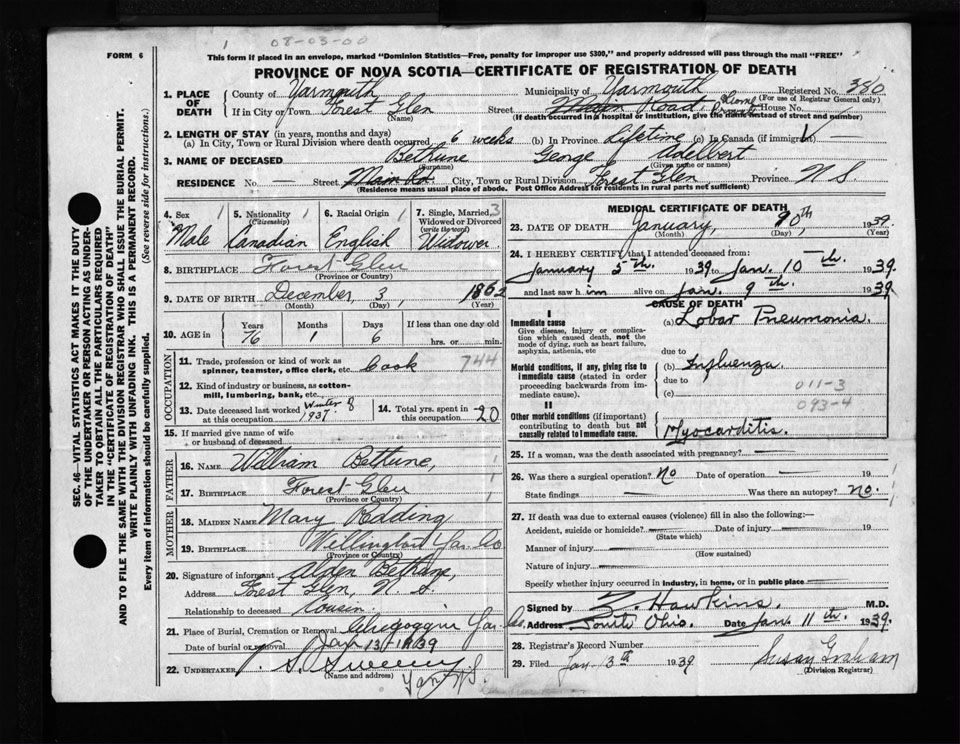 1 08-03-00
FORM 6
This form if placed in an envelope, marked "Dominion Statistics—Free, penalty for improper use $300," and properly addressed will pass through the mail "FREE"
PROVINCE OF NOVA SCOTIA—CERTIFICATE OF REGISTRATION OF DEATH
SEC. 46—VITAL STATISTICS ACT MAKES IT THE DUTY
OF THE UNDERTAKER OR PERSON ACTING AS UNDER-
TAKER TO OBTAIN ALL THE PARTICULARS REQUIRED
IN THE "CERTIFICATE OF REGISTRATION OF DEATH"
AND TO FILE THE SAME WITH THE DIVISION REGISTRAR WHO SHALL ISSUE THE BURIAL PERMIT.
WRITE PLAINLY WITH UNFADING INK. THIS IS A PERMANENT RECORD.
Every item of information should be carefully supplied. (See reverse side for instructions.)
1. PLACE OF DEATH
County of Yarmouth Municipality of Yarmouth Registered No. 380
(For use of Registrar General only)
If in City or Town Forest Glen Street Main Road House No.
(Name) (If death occurred in a hospital or institution, give the name instead of street and number)
2. LENGTH OF STAY (in years, months and days)
(a) In City, Town or Rural Division where death occurred 6 weeks (b) In Province Lifetime (c) In Canada (if immigrant) —
3. NAME OF DECEASED Bethune George Adelbert
(Surname) (Given name or names)
RESIDENCE No. Street Main Rd. City, Town or Rural Division Forest Glen, Province N.S.
(Residence means usual place of abode. Post Office Address for residents in rural parts not sufficient)
4. Sex 1 Male
5. Nationality 1 (Citizenship) Canadian
6. Racial Origin 1 English
7. Single, Married, 3 Widowed or Divorced (write the word) Widower
8. BIRTHPLACE Forest Glen
(Province or Country)
9. DATE OF BIRTH December, 3, 1862
(Month) (Day) (Year)
10. AGE in Years 76 Months 1 Days 6 If less than one day old
hrs. or min.
OCCUPATION
11. Trade, profession or kind of work as
spinner, teamster, office clerk, etc. Cook 744
12. Kind of industry or business, as cotton-
mill, lumbering, bank, etc.
13. Date deceased last worked at this occupation Winter of 1937.
14. Total yrs. spent in this occupation 20
15. If married give name of wife
or husband of deceased
FATHER
16. NAME William Bethune, 1
17. BIRTHPLACE Forest Glen 1
(Province or Country)
MOTHER
18. MAIDEN NAME Mary Redding
19. BIRTHPLACE Willington Yar. Co
(Province or Country)
20. Signature of informant Alden Bethune,
Address Forest Glen, N.S.
Relationship to deceased Cousin.
21. Place of Burial, Cremation or Removal Chegoggin Yar. Co.
Date of burial or removal Jan 13 1939
22. UNDERTAKER S. Sweeny
(Name and address) Yar N.S.
MEDICAL CERTIFICATE OF DEATH
23. DATE OF DEATH January, 10th 1939
(Month) (Day) (Year)
24. I HEREBY CERTIFY that I attended deceased from:
January 5th. 1939 to Jan. 10th 1939.
and last saw him alive on Jan. 9th. 1939
CAUSE OF DEATH
I
Immediate cause (a) Lobar Pneumonia.
Give disease, injury or complica-
tion which caused death, not the
mode of dying, such as heart failure,
asphyxia, asthenia, etc
due to
Morbid conditions, if any, giving rise to
immediate cause (stated in order
proceeding backwards from im-
mediate cause).
(b) Influenza
due to
(c)
011-3
093-4
II
Other morbid conditions (if important)
contributing to death but not
causally related to immediate cause.
Myocarditis.
25. If a woman, was the death associated with pregnancy? —
26. Was there a surgical operation? No Date of operation — 19 1
State findings — Was there an autopsy? No. 1
27. If death was due to external causes (violence) fill in also the following:—
Accident, suicide or homicide? — Date of injury — 19
(State which)
Manner of injury —
(How sustained)
Nature of injury —
Specify whether injury occurred in industry, in home, or in public place —
Signed by Hawkins. M.D.
Address South Ohio. Date Jan. 11th. 1939.
28. Registrar's Record Number
29. Filed Jan 3th 1939 Susan Graham
(Division Registrar)